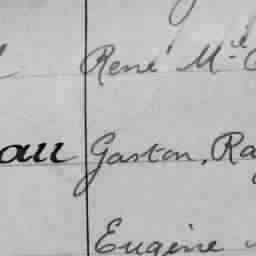 René M^ie
au Gaston, Ra
Eugène